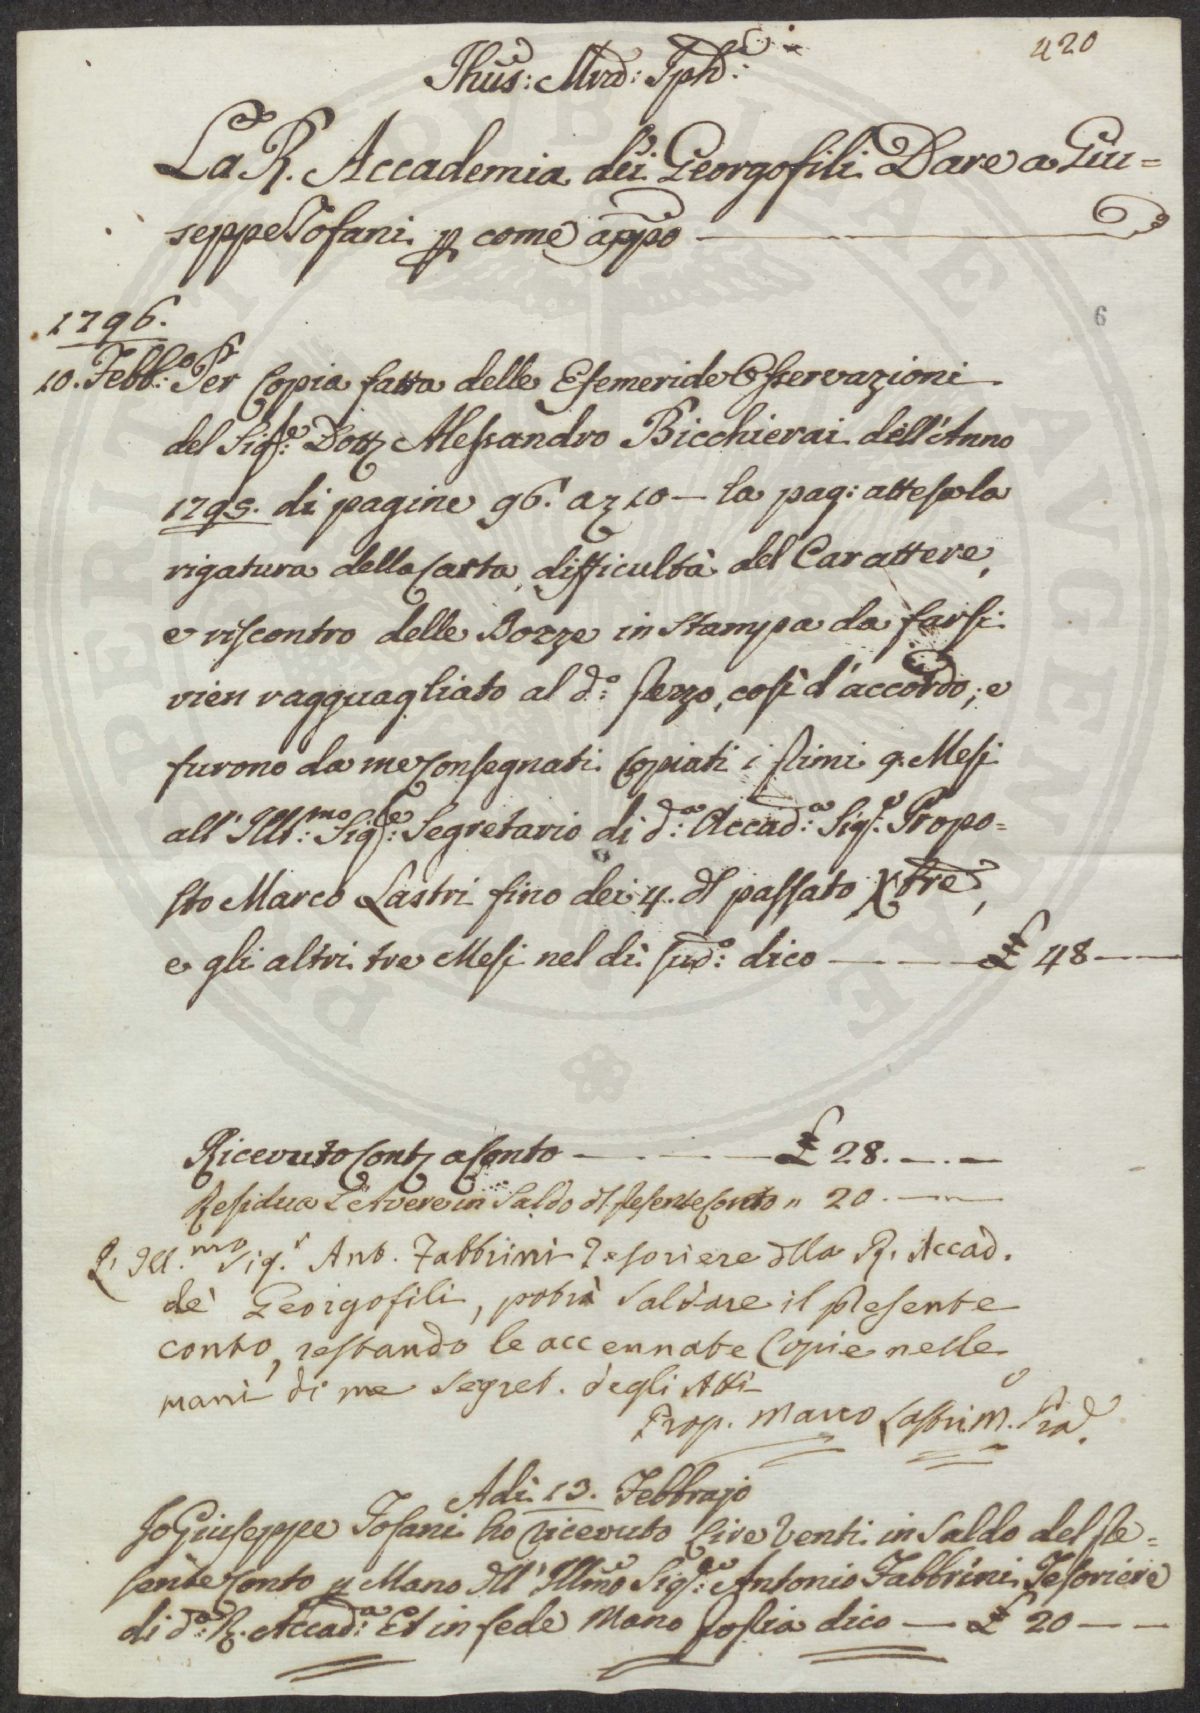 420
Jhus: Mrd: Jphd:
La R. Accademia dei Georgofili Dare a Giu=
seppe Tofani p come appo
6
1796.
10. Febb.o Per Copia fatta delle Efemeride Osservazioni
del Sigr.e Dott Alessandro Bicchierai dell'Anno
1795. di pagine 96. a 10 — la pag: attesa la
rigatura della Carta, difficultà del Carattere,
e riscontro delle Bozze in Stampa da farsi
vien ragguagliato al d.o prezzo, così d'accordo; e
furono da me Consegnati Copiati i primi 9. Mesi
all'Ill:mo Sigr:e Segretario di d:a Accad:a Sigr:e Propo=
sto Marco Lastri fino dei 4. dl passato Xbre,
e gli altri tre Mesi nel dì sud:o dico — £ 48 —
Ricevuto Cont a Conto — £ 28. —
Residua L'Avere in Saldo dl presente Conto " 20. —
L' Ill.mo Sig.r Ant. Fabbrini Tesoriere dlla R. Accad.
de' Georgofili, potrà saldare il presente
conto, restando le accennate Copie nelle
mani di me Segret. degli Atti
Prop. Marco Lastri M.
Adì 13. Febbrajo
Io Giuseppe Tofani ho ricevuto Lire Venti in Saldo del pre=
sente Conto p Mano dll' Illmo Sigr:e Antonio Fabbrini Tesoriere
di d:a R. Accad:a Et in fede Mano Propria dico — £ 20 —
PATRIT PERITIA PUBLICAE AUGENDAE